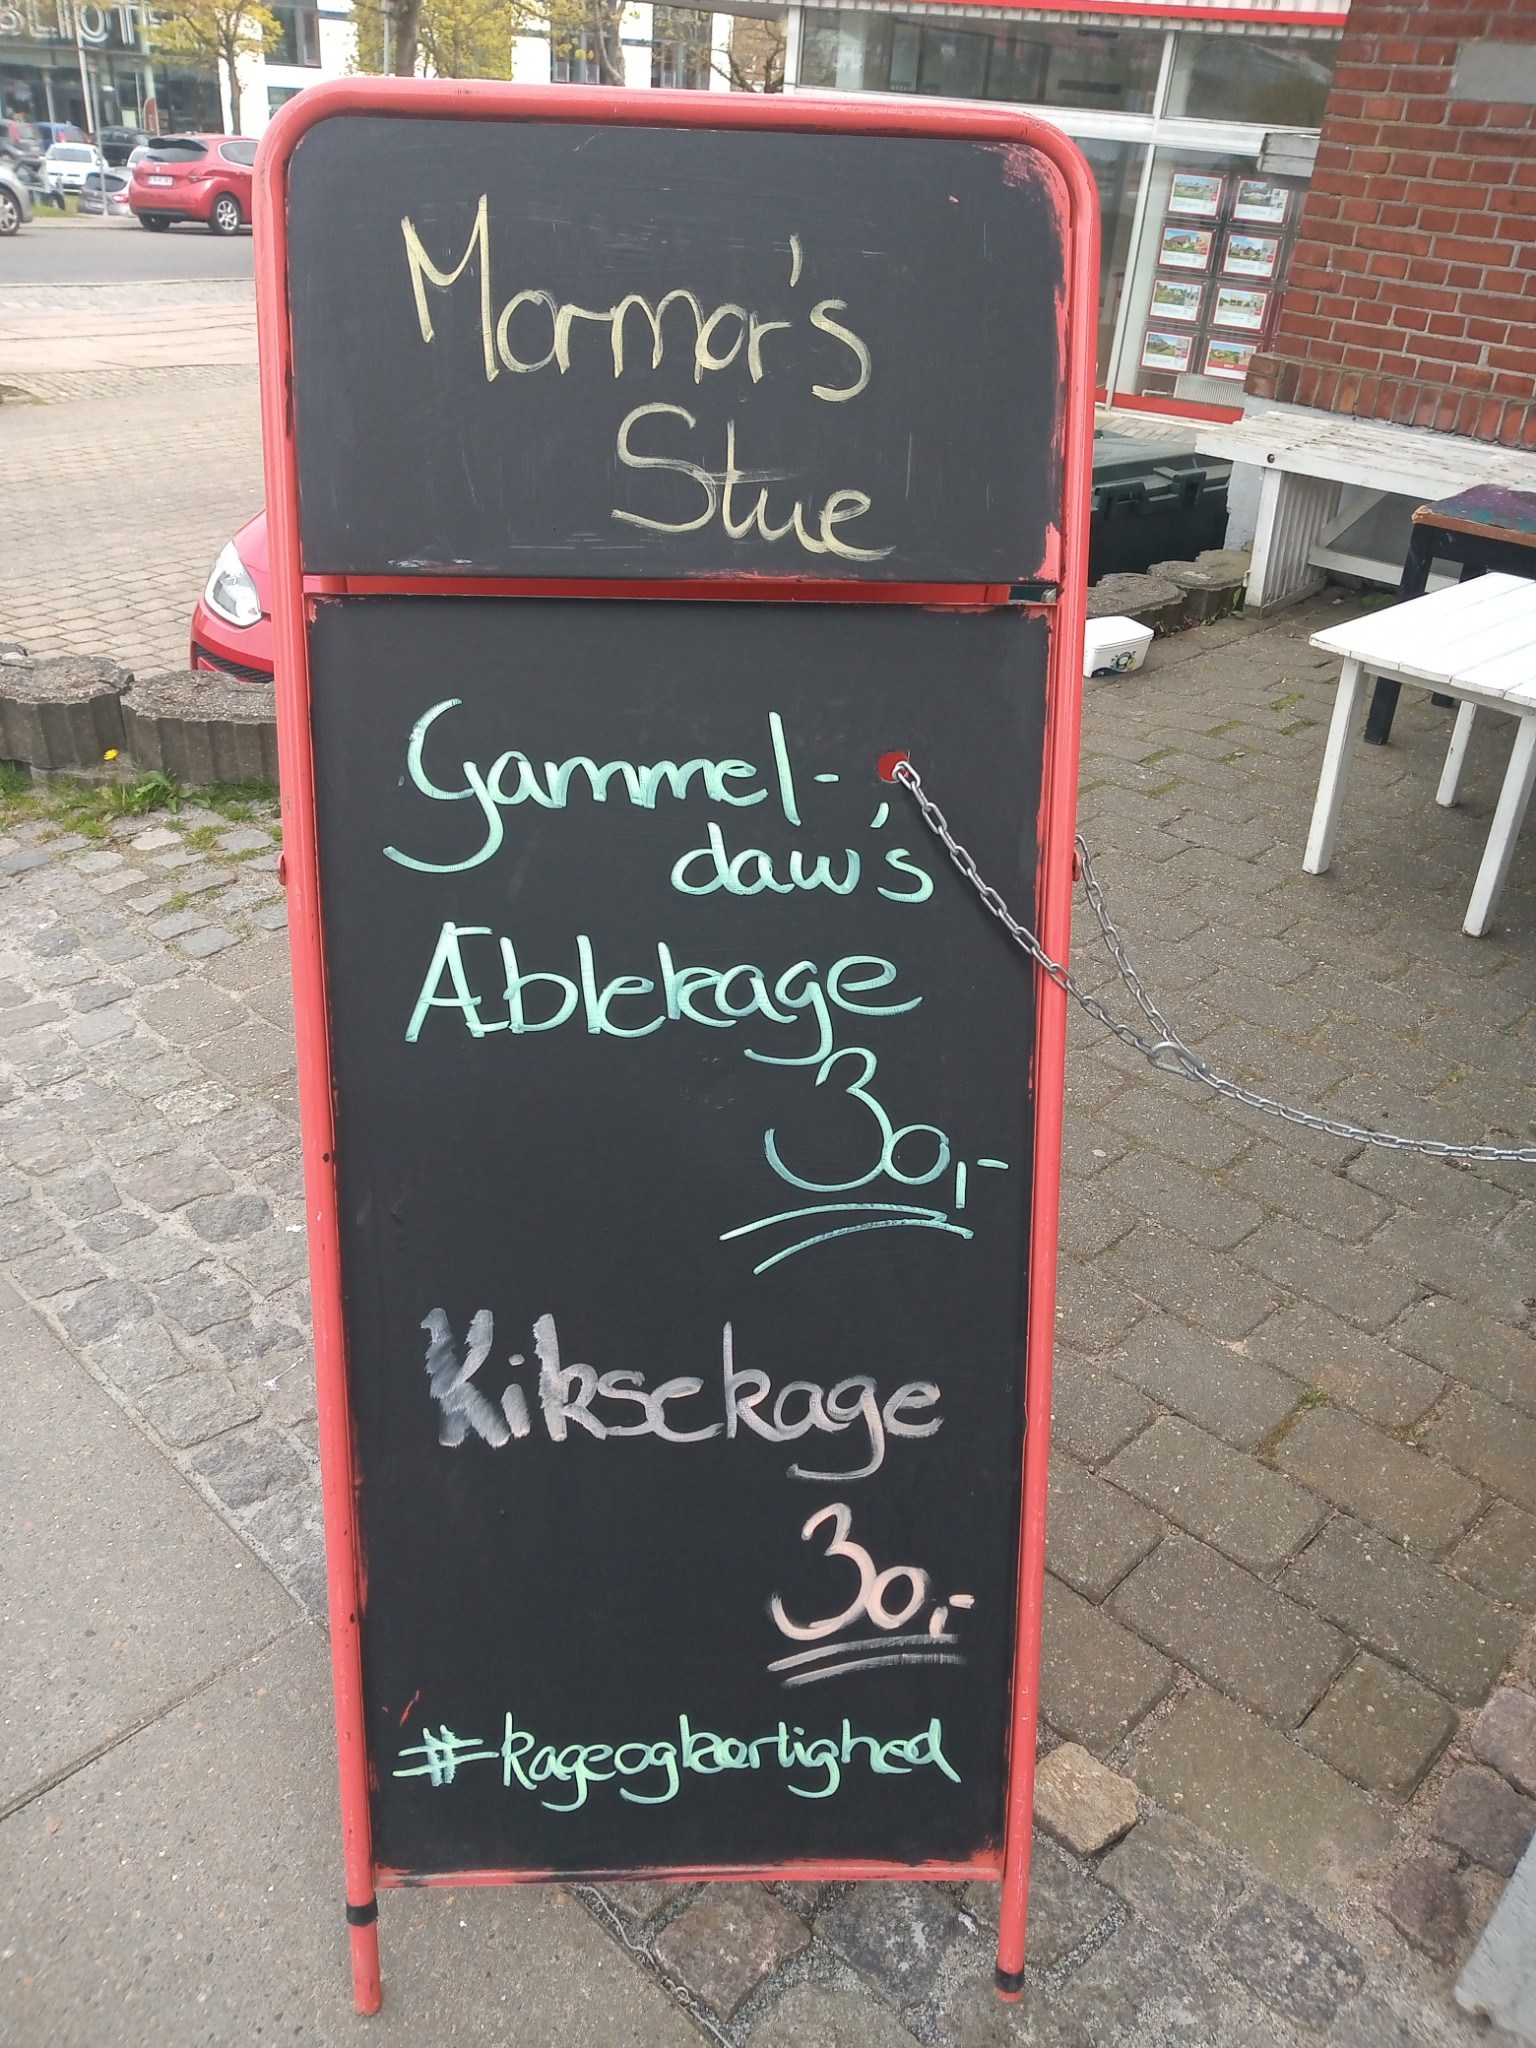 Mormor's
Stue
Gammel-
daw's
Æblekage
30,-
Kiksekage
30,-
#kageogkærlighed